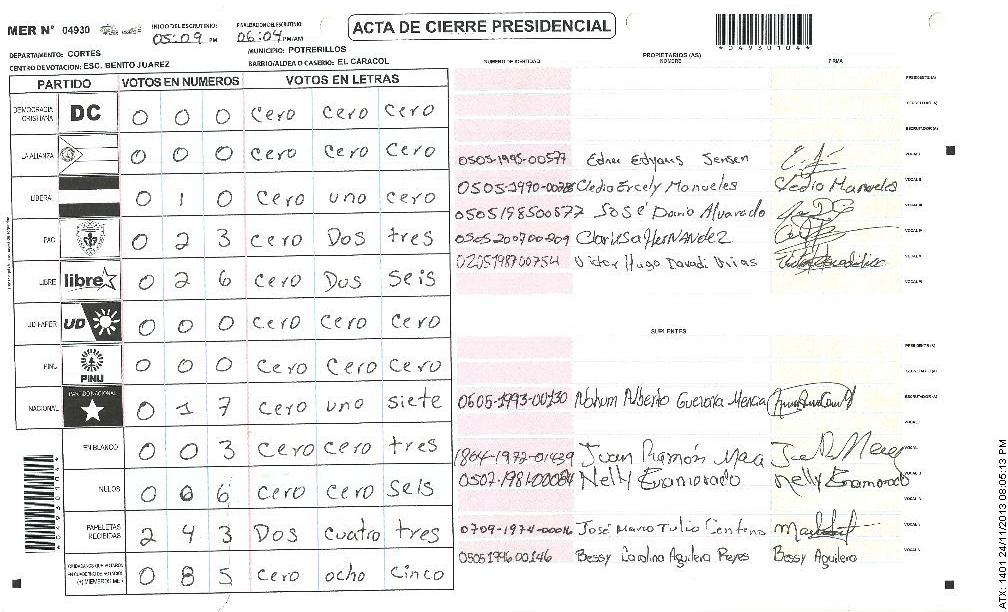 MER N° 04930
INICIO DEL ESCRUTINIO
05:09 PM
FINALIZACION DEL ESCRUTINIO
06:04 PM/AM
ACTA DE CIERRE PRESIDENCIAL
04930104
DEPARTAMENTO: CORTES
MUNICIPIO: POTRERILLOS
CENTRO DE VOTACION: ESC. BENITO JUAREZ
BARRIO/ALDEA O CASERIO: EL CARACOL
PARTIDO VOTOS EN NUMEROS VOTOS EN LETRAS
DEMOCRACIA CRISTIANA DC 0 0 0 cero cero cero
LA ALIANZA 0 0 0 cero cero cero
LIBERAL 0 1 0 cero uno cero
PAC 0 2 3 cero Dos tres
LIBRE libre 0 2 6 cero Dos seis
UD-FAPER UD 0 0 0 cero cero cero
PINU PINU 0 0 0 cero cero cero
NACIONAL PARTIDO NACIONAL 0 1 7 cero uno siete
EN BLANCO 0 0 3 cero cero tres
NULOS 0 0 6 cero cero seis
PAPELETAS RECIBIDAS 2 4 3 Dos cuatro tres
CIUDADANOS QUE VOTARON EN CUADERNO DE VOTACION (+) MIEMBROS MER 0 8 5 cero ocho cinco
NUMERO DE IDENTIDAD PROPIETARIOS (AS) NOMBRE FIRMA
PRESIDENTE (A)
SECRETARIO (A)
ESCRUTADOR (A)
0505-1995-00577 Edyans Jensen VOCAL I
0505-1990- Cledia Ercely Manueles Cledia Manueles VOCAL II
0505198500577 José Dario Alvarado
0505200700209 Clarissa Hernandez
0205198700754 Victor Hugo
SUPLENTES
PRESIDENTE (A)
SECRETARIO (A)
0605-1993-00130 Nahum Alberto Guevara Mencia ESCRUTADOR (A)
VOCAL I
1804-1972-01439 Juan Ramón
0507-1981-00084 Nelly Enamorado Nelly Enamorado
0709-1974-00016 José Mario Tulio Centeno
0505199600146 Bessy Carolina Aguilera Reyes Bessy Aguilera
ATX: 1401 24/11/2013 08:05:13 PM